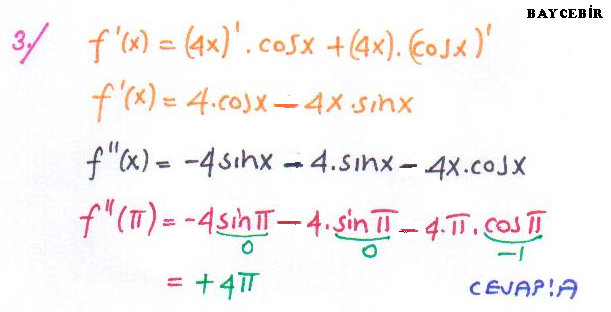 BAYCEBİR
3./ f'(x) = (4x)'.cosx + (4x).(cosx)'
f'(x) = 4.cosx - 4x.sinx
f''(x) = -4sinx - 4.sinx - 4x.cosx
f''(π) = -4sinπ - 4.sinπ - 4.π.cosπ
0 0 -1
= +4π CEVAP!A